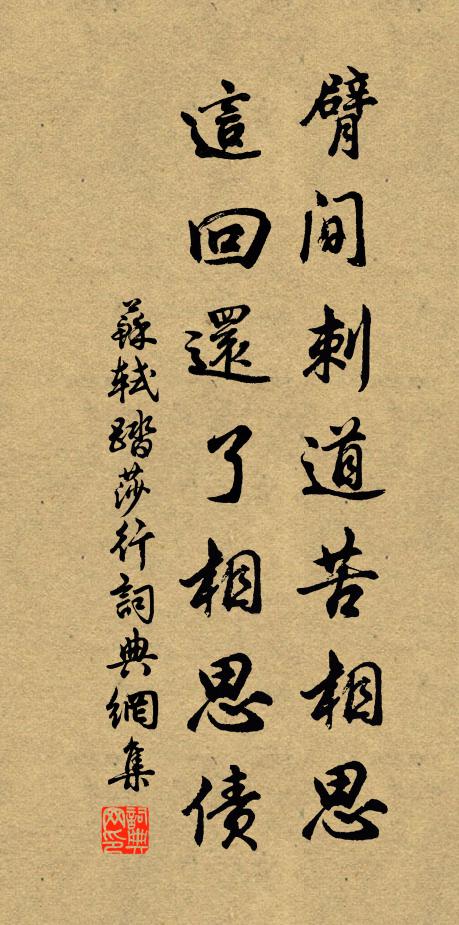 臂間刺道苦相思
這回還了相思債
蘇軾踏莎行詞典網集
詞典
网印